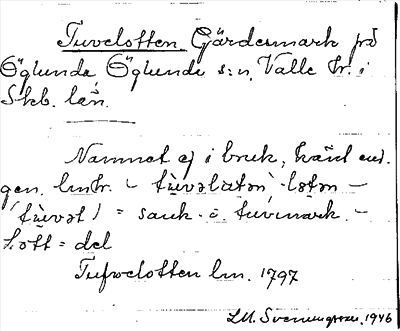 Tuvelotten Gärdesmark på
Öglunda, Öglunda s:n, Valle hr. i
Skb. län.
Namnet ej i bruk, känt end.
gen. lmhr. – tùvəlåtən -lotən –
(tùvət) = sank o. tuvmark. –
Lott = del
Tufvelotten lm. 1797
1946